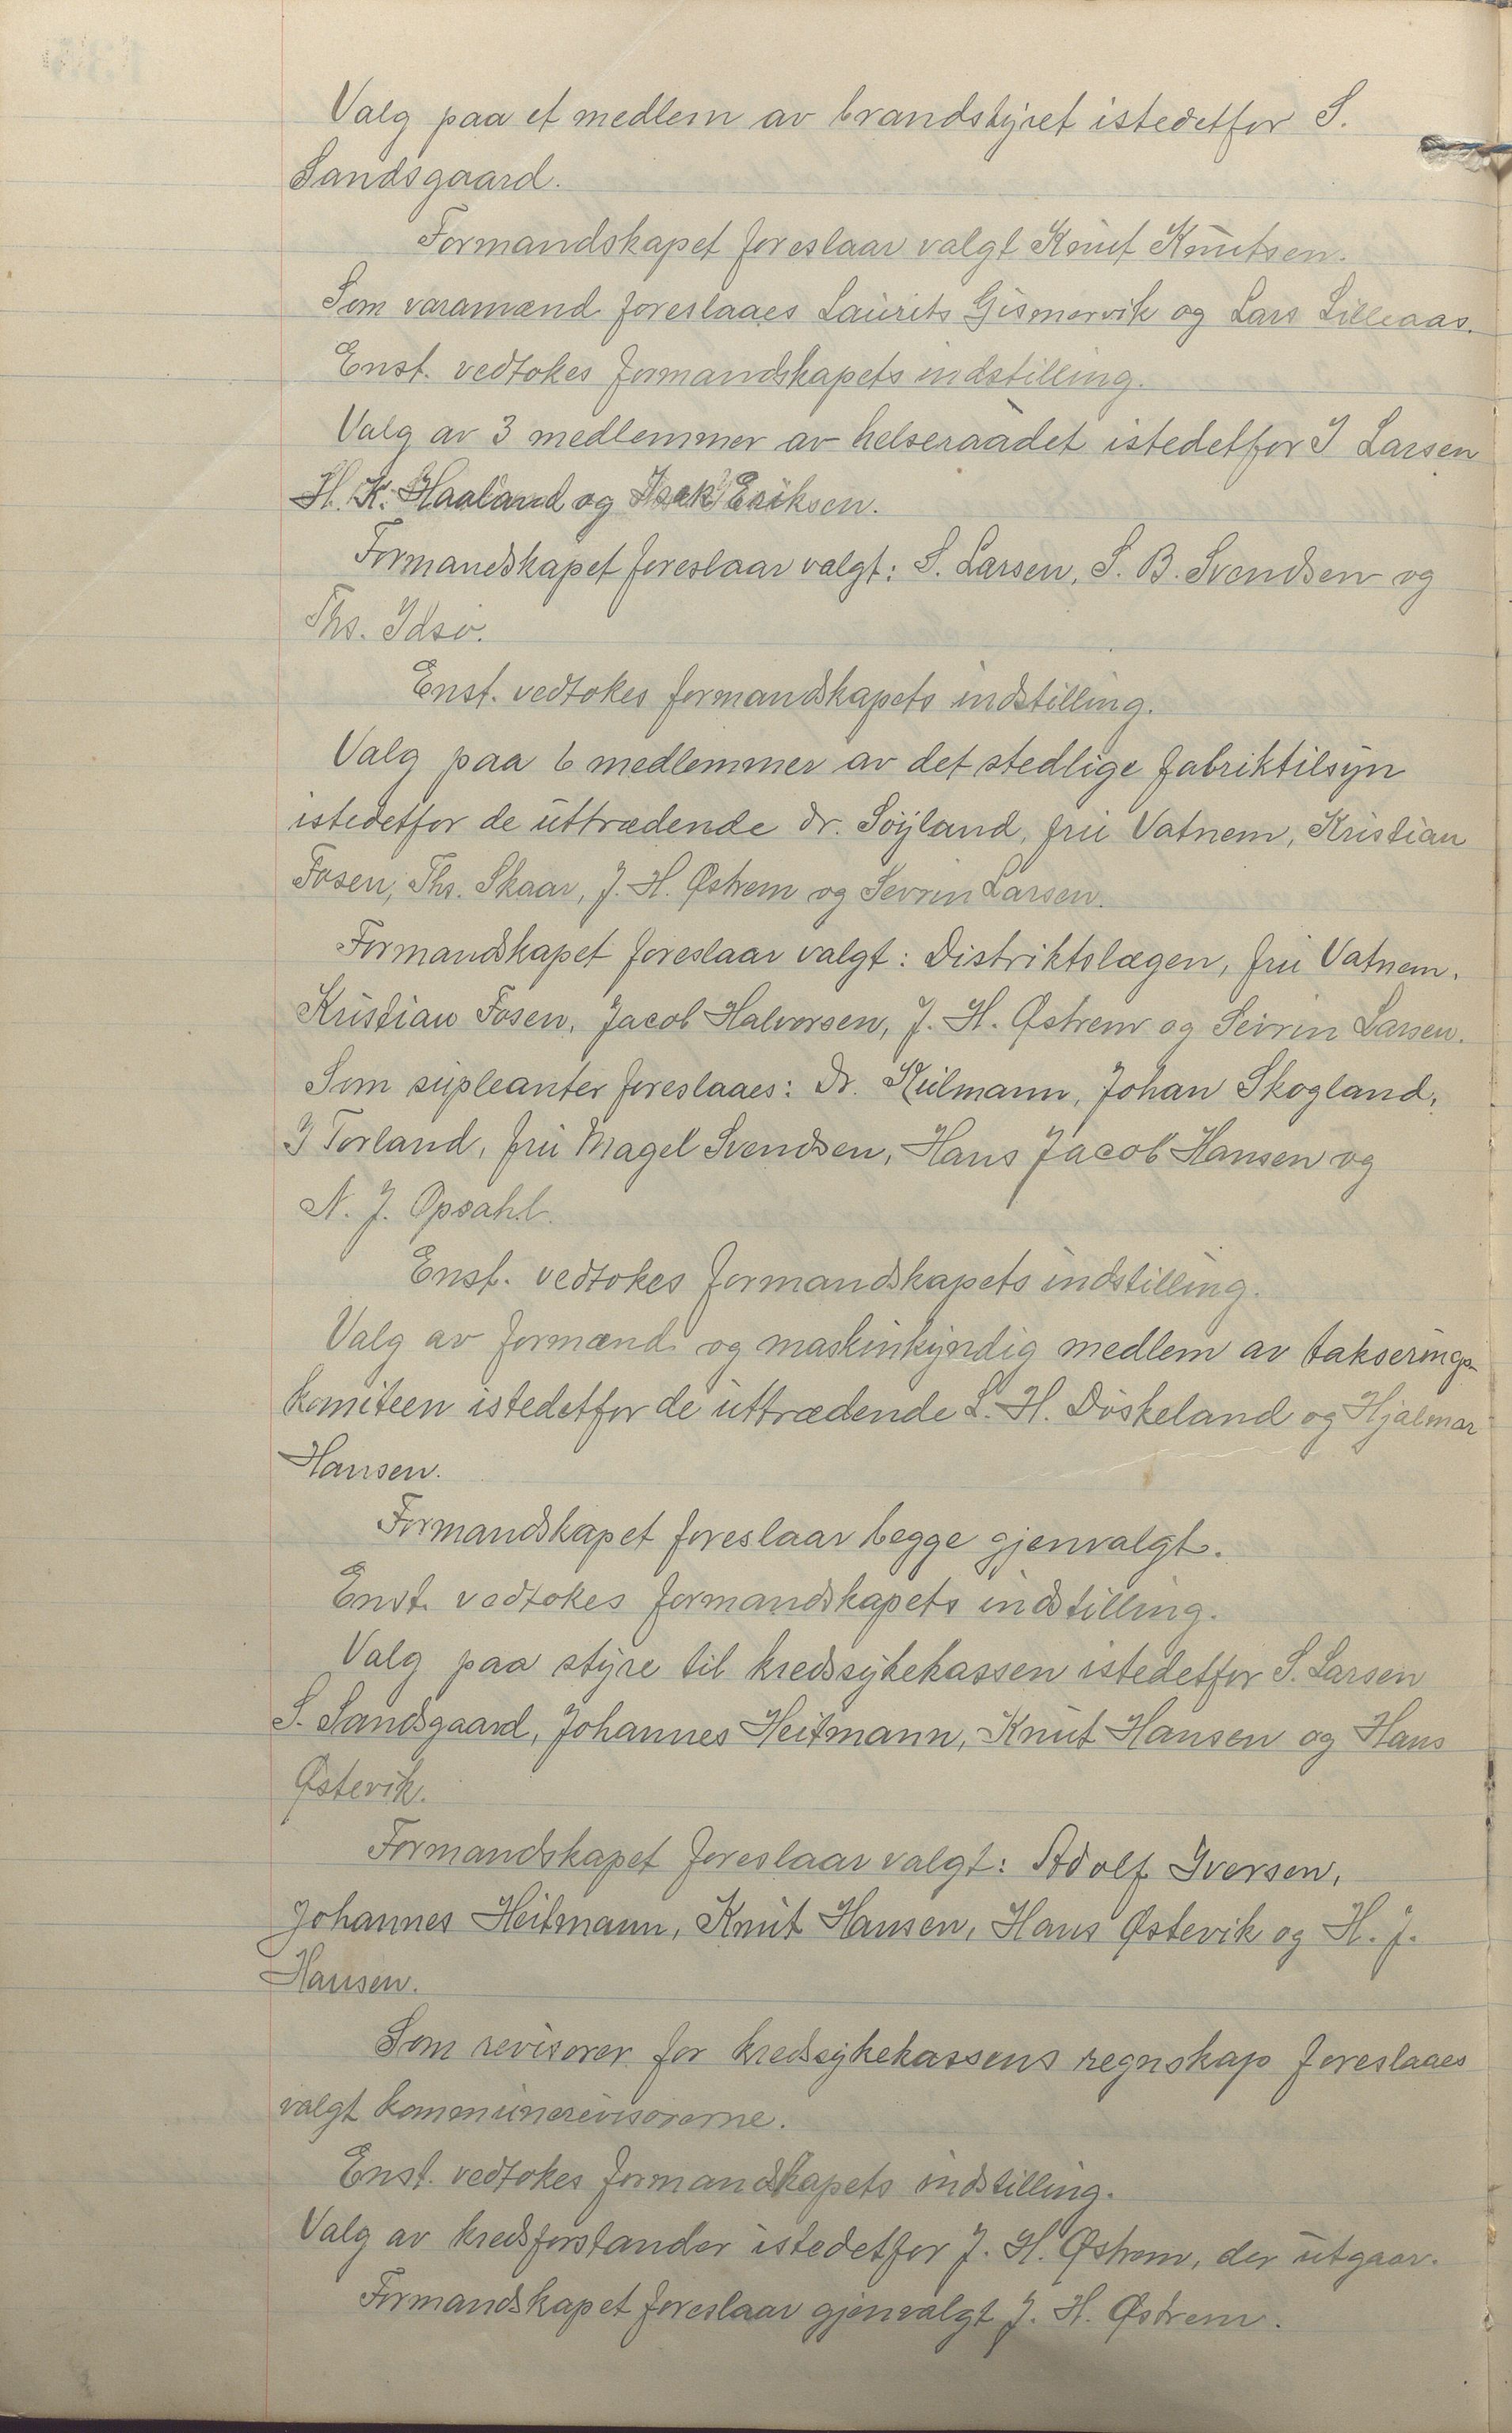 Valg paa et medlem av brandstyret istedetfor S.
Sandsgaard.
Formandskapet foreslaar valgt Knut Knutsen.
Som varamænd foreslaaes Laurits Gismarvik og Lars Lilleaas.
Enst. vedtokes formandskapets indstilling.
Valg av 3 medlemmer av helseraadet istedetfor I Larsen
H. K. Haaland og Isak Eriksen.
Formandskapet foreslaar valgt: S. Larsen, S. B. Svendsen og
Ths. Idsø.
Enst. vedtokes formandskapets indstilling.
Valg paa 6 medlemmer av det stedlige fabriktilsyn
istedetfor de uttrædende dr. Søyland, fru Vatnem, Kristian
Fosen, Ths. Skaar, J. H. Østrem og Sevrin Larsen.
Formandskapet foreslaar valgt: Distriktslægen, fru Vatnem,
Kristian Fosen, Jacob Halvorsen, J. H. Østrem og Sevrin Larsen.
Som supleanter foreslaaes: Dr. Kulmann, Johan Skogland,
I Torland, fru Magel Svendsen, Hans Jacob Hansen og
N. J. Opsahl.
Enst. vedtokes formandskapets indstilling.
Valg av formand og maskinkyndig medlem av takserings-
komiteen istedetfor de uttrædende L. H. Døskeland og Hjalmar
Hansen.
Formandskapet foreslaar begge gjenvalgt.
Enst. vedtokes formandskapets indstilling.
Valg paa styre til kredssykekassen istedetfor S. Larsen
S. Sandsgaard, Johannes Heitmann, Knut Hansen og Hans
Østevik.
Formandskapet foreslaar valgt: Adolf Iversen,
Johannes Heitmann, Knut Hansen, Hans Østevik og H. J.
Hansen.
Som revisorer for kredssykekassens regnskap foreslaaes
valgt kommunerevisorerne.
Enst. vedtokes formandskapets indstilling.
Valg av kredsforstander istedetfor J. H. Østrem, der utgaar.
Formandskapet foreslaar gjenvalgt J. H. Østrem.